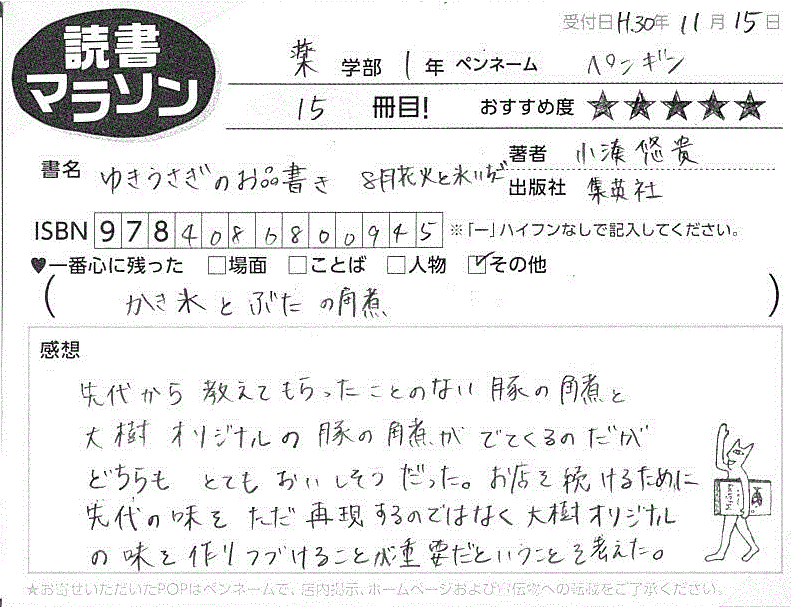 読書
マラソン
受付日 H.30年 11月 15日
薬 学部 1 年 ペンネーム ペンギン
15 冊目! おすすめ度 ★★★★★
書名 ゆきうさぎのお品書き 8月花火と氷いちご
著者 小湊悠貴
出版社 集英社
ISBN 9784086800945 ※「ー」ハイフンなしで記入してください。
♥一番心に残った □場面 □ことば □人物 ☑その他
(かき氷とぶたの角煮)
感想
先代から教えてもらったことのない豚の角煮と
大樹オリジナルの豚の角煮がでてくるのだが
どちらもとてもおいしそうだった。お店を続けるために
先代の味をただ再現するのではなく大樹オリジナル
の味を作りつづけることが重要だということを考えた。
★お寄せいただいたPOPはペンネームで、店内掲示、ホームページおよび宣伝物への転載をご了承ください。